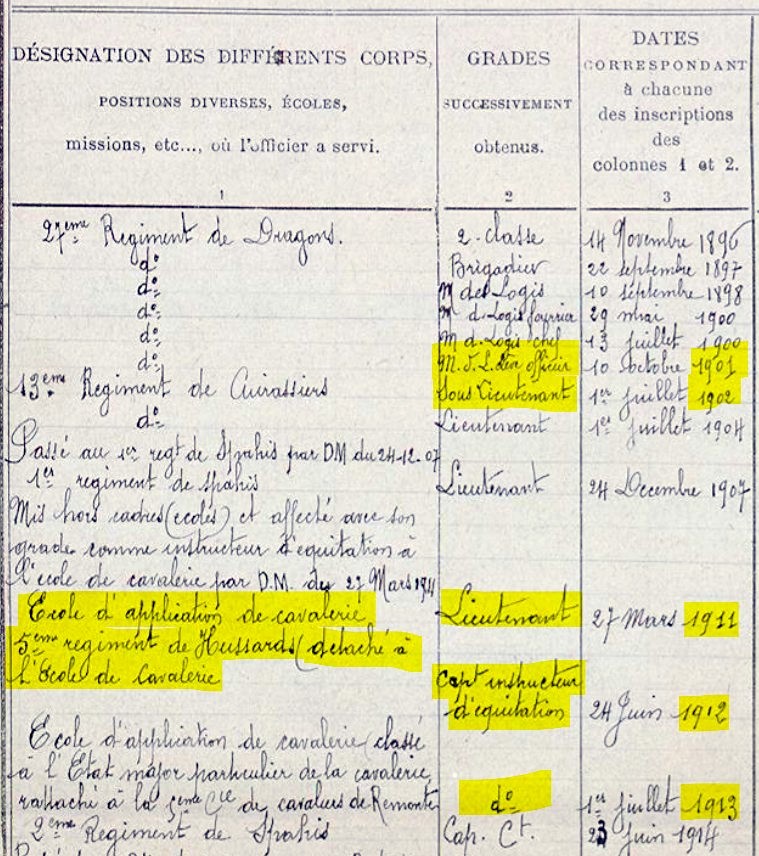 DÉSIGNATION DES DIFFÉRENTS CORPS,
POSITIONS DIVERSES, ÉCOLES,
missions, etc..., où l'officier a servi.
1
GRADES
SUCCESSIVEMENT
obtenus.
2
DATES
CORRESPONDANT
à chacune
des inscriptions
des
colonnes 1 et 2.
3
27eme Regiment de Dragons. 2e classe 14 Novembre 1896
do Brigadier 22 septembre 1897
do M des Logis 10 septembre 1898
do M d. Logis fourrier 29 mai 1900
do M d. Logis chef 13 juillet 1900
do M. d. L. élève officier 10 octobre 1901
13eme Regiment de Cuirassiers Sous Lieutenant 1er juillet 1902
do Lieutenant 1er juillet 1904
Passé au 1er regt de Spahis par DM du 24-12-07
1er regiment de spahis Lieutenant 24 Decembre 1907
Mis hors cadres (ecoles) et affecté avec son
grade comme instructeur d'equitation à
l'école de cavalerie par D.M. du 27 Mars 1911
Ecole d'application de cavalerie Lieutenant 27 Mars 1911
5eme regiment de Hussards (detaché à
l'Ecole de Cavalerie Capt instructeur
d'equitation 24 Juin 1912
Ecole d'application de cavalerie classé
à l'Etat major particulier de la cavalerie,
rattaché à la 5eme Cie de cavaliers de Remonte do 1er juillet 1913
2eme Regiment de Spahis Cap. Ct. 23 Juin 1914